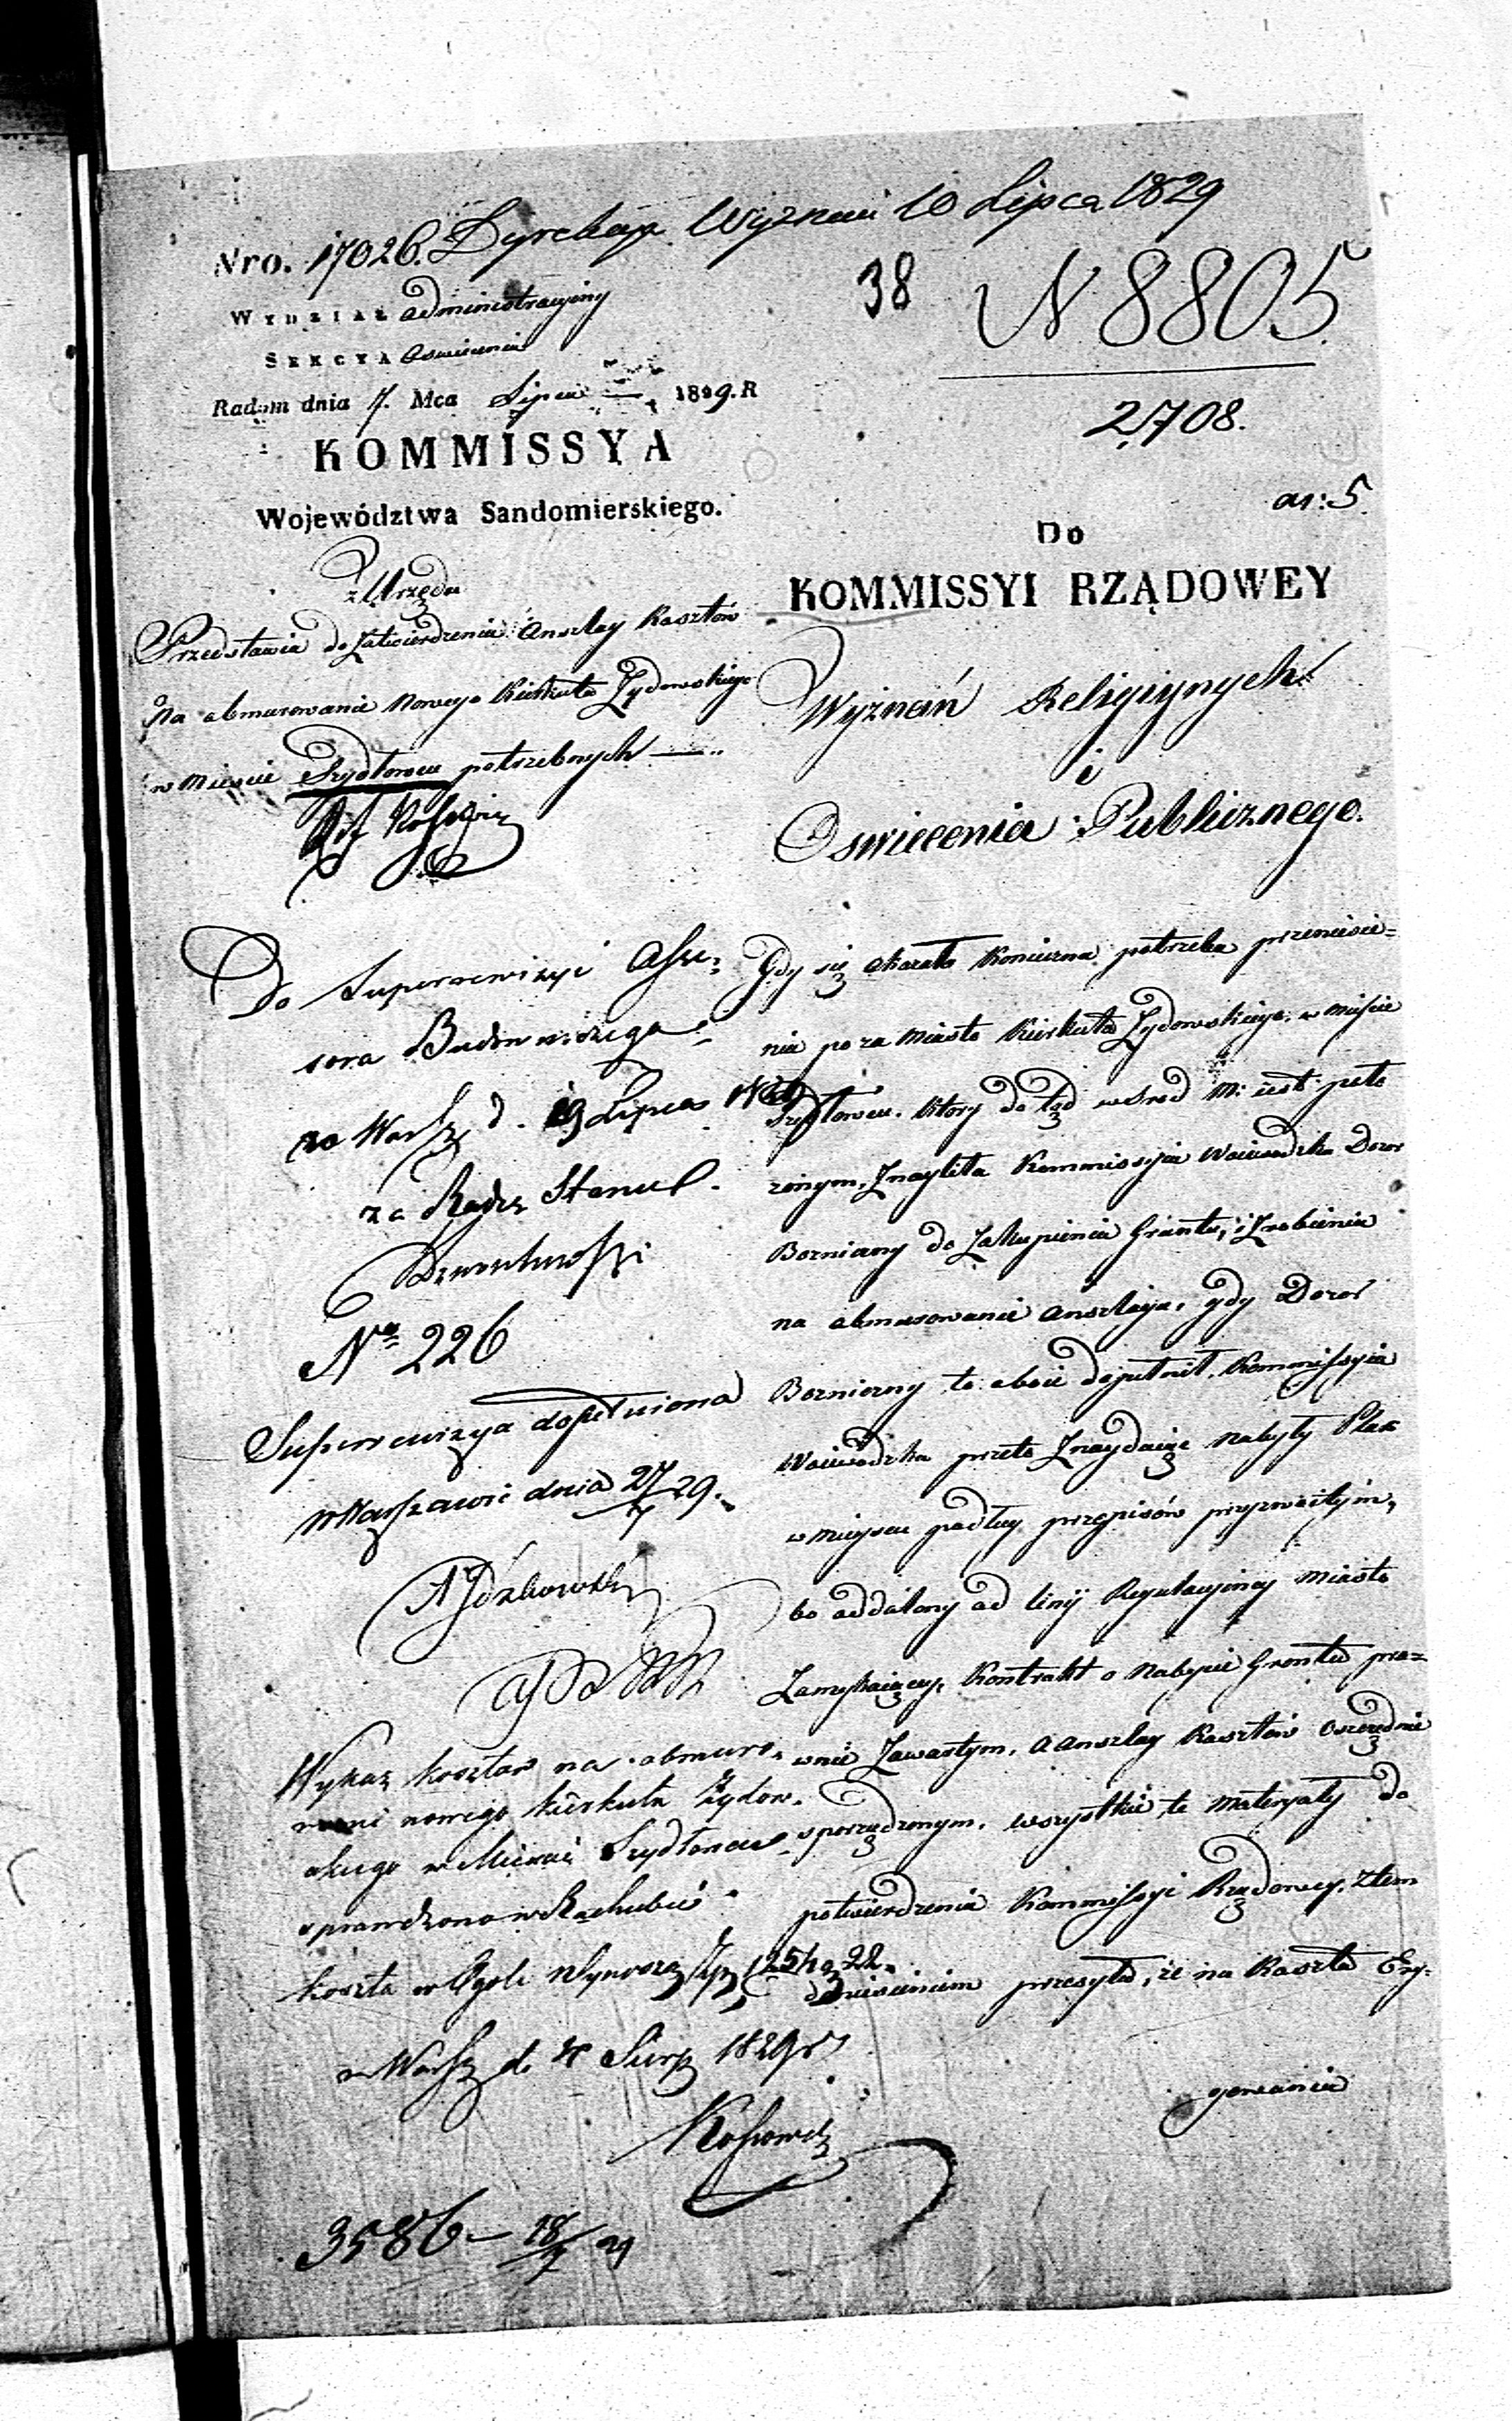 Dyrekcya Wyznań 10 Lipca 1829
Nro. 17026.
38 N 8805.
WYDZIAŁ administracyiny
SEKCYA Oswiecenia
Radom dnia 7. Mca Lipca 1829. R
2,708.
KOMMISSYA
Województwa Sandomierskiego.
an: 5.
Do
KOMMISSYI RZĄDOWEY
Wyznań Religiynych
i
Oswiecenia Publicznego.
z Urzędu
Przedstawia do Zatwierdzenia Anszlag Kosztów
Na obmurowanie Nowego Kierkuta Żydowskiego
w Mieście Szydłowcu potrzebnych
Do Superrewizyi Asse:
sora Budowniczego
w Warsz d. 19 Lipca
za Radcę Stanu
No 226
Superrewizya dopełniona
w Warszawie dnia 27/7 29.
Wykaz kosztów na obmuro
nowego kierkuta żydow
skiego w Mieście Szydłowcu
sprawdzono w Rachubie
koszta w Ogóle wynoszą
w Warsz d. 4 Sierp 1829 r
3586 – 18/7 29
Gdy się okazała konieczna potrzeba przeniesie=
nia poza miasto Kierkuta Żydowskiego w mieście
Szydłowcu, który dotąd wśród M: iest poło
żonym, Znagliła Kommissya Woiewódzka Dozor
Bozniczny do Zakupienia Gruntu, i Zrobienia
na obmurowanie anszlagu, gdy Dozor
Bozniczny to oboie dopełnił, Kommissyia
Woiewódzka przeto Znayduiąc nabyty Plac
w mieyscu podług przepisów przyzwoitym,
bo oddalony od linij Regulacyiney miasto
Zamykaiącey, Kontrakt o nabycie Gruntu pra=
wnie Zawartym, a anszlag Kosztów oszczędnie
sporządzonym, wszystkie te materyały do
potwierdzenia Kommissyi Rządowey, Z tem
doniesieniem przesyła, że na Koszta Ery=
gowania